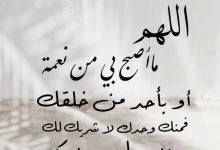 اللهم
ماأصبح بي من نعمة
أو بأحد من خلقك
فمنك وحدك لا شريك لك